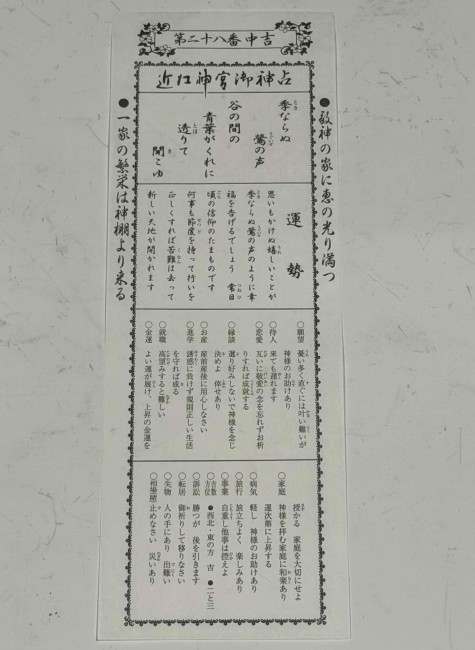 第二十八番中吉
近江神宮御神占
●敬神の家に恵の光り満つ
季ならぬ
鶯の声
谷の間の
青葉がくれに
透りて
聞こゆ
●一家の繁栄は神棚より来る
運勢
思いもかけぬ嬉しいことが
季ならぬ鶯の声のように幸
福を告げるでしょう 常日
頃の信仰のたまものです
何事も節度を持って行いを
正しくすれば苦難は去って
新しい天地が開かれます
○願望 憂い多く直ぐには叶い難いが
神様のお助けあり
○待人 来ても遅れます
○恋愛 互いに敬愛の念を忘れずお祈
りすれば成就する
○縁談 選り好みしないで神様を念じ
決めよ 倖せあり
○お産 産前産後に用心しなさい
○進学 誘惑に負けず規則正しい生活
を守れば成る
○就職 高望みすると難しい
○金運 よい運が展け、上昇の金運を
授かる 家庭を大切にせよ
○家庭 神様を拝む家庭に和楽あり
運次第に上昇する
○病気 軽し 神様のお助けあり
○旅行 旅立ちよく 楽しみあり
○事業 自重し他事は控えよ
○吉数方位 ●西北・東の方 吉 ●二と三
○訴訟 勝つが 後を引きます
○転居 御祈りして移りなさい
○失物 人の手にあり 出難い
○相場賭 止めなさい 災いあり